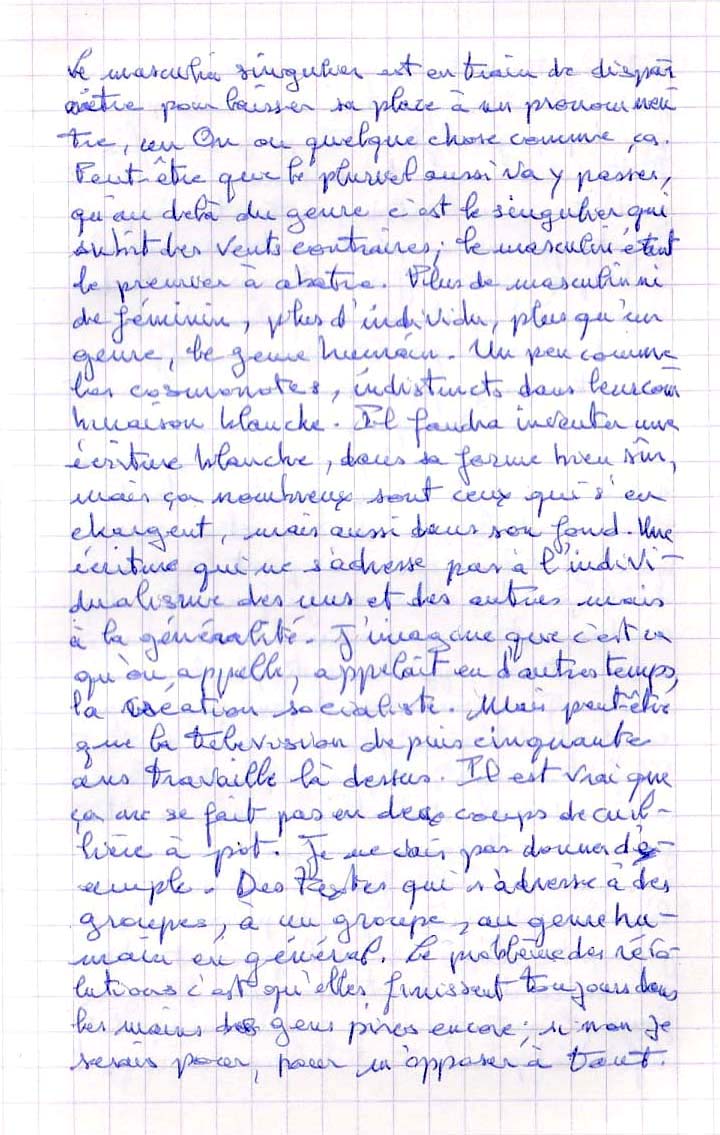 Le masculin singulier est en train de dispar
aître pour laisser sa place à un pronom neu
tre, un On ou quelque chose comme ça.
Peut-être que le pluriel aussi va y passer,
qu'au delà du genre c'est le singulier qui
subit des vents contraires; le masculin étant
le premier à abattre. Plus de masculin ni
de féminin, plus d'individu, plus qu'un
genre, le genre humain. Un peu comme
les cosmonotes, indistincts dans leur com
binaison blanche. Il faudra inventer une
écriture blanche, dans sa forme bien sûr,
mais ça nombreux sont ceux qui s'en
chargent, mais aussi dans son fond. Une
écriture qui ne s'adresse pas à l'indivi-
dualisme des uns et des autres mais
à la généralité. J'imagine que c'est ce
qu'on appelle, appelait en d'autres temps,
la création socialiste. Mais peut-être
que la télévision depuis cinquante
ans travaille là dessus. Il est vrai que
ça ne se fait pas en deux coups de cuil-
lière à pot. Je ne sais pas donner d'e-
xemple. Des textes qui s'adresse à des
groupes, à un groupe, au genre hu-
main en général. Le problème des révo-
lutions c'est qu'elles finissent toujours dans
les mains des gens pires encore; si non je
serais pour, pour m'opposer à tout.